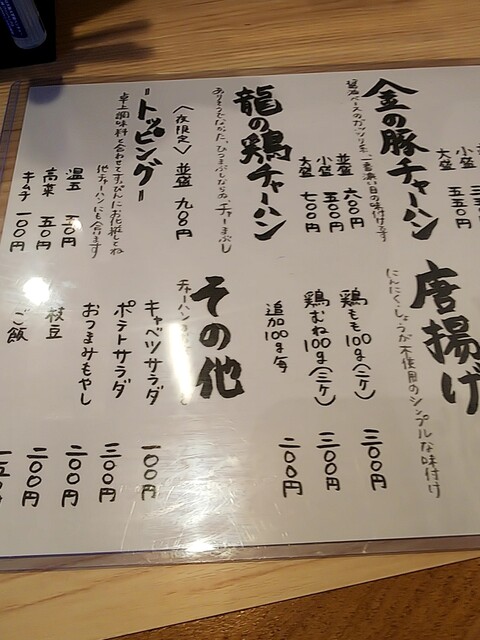 大盛
小盛 五五〇円
金の豚チャーハン
醤油ベースのガッツリ系、一番濃い目の味付けです
並盛 六〇〇円
小盛 五〇〇円
大盛 七〇〇円
龍の鶏チャーハン
ありそうでなかった、ひつまぶしならぬ、“チャーまぶし
〈夜限定〉 並盛 九〇〇円
ートッピングー
卓上調味料と合わせてすっぴんにお化粧してね
他チャーハンにも合います
温玉 五〇円
高菜 五〇円
キムチ 一〇〇円
唐揚げ
にんにく、しょうが不使用のシンプルな味付け
鶏もも100g(二ケ) 三〇〇円
鶏むね100g(二ケ) 三〇〇円
追加100g毎 二〇〇円
その他
キャベツサラダ 一〇〇円
ポテトサラダ 三〇〇円
おつまみもやし 二〇〇円
枝豆 二〇〇円
ご飯 一五〇円